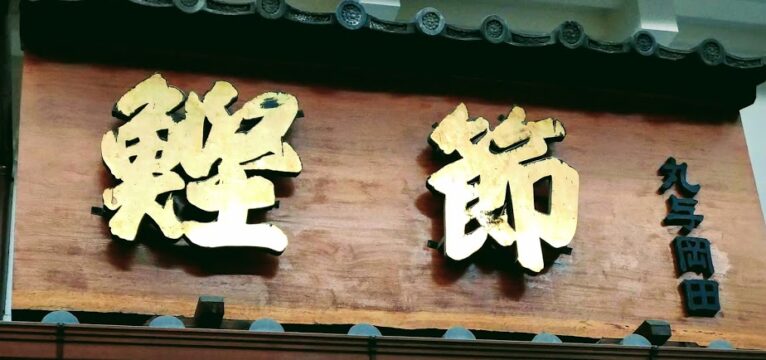 鰹節
丸与岡田